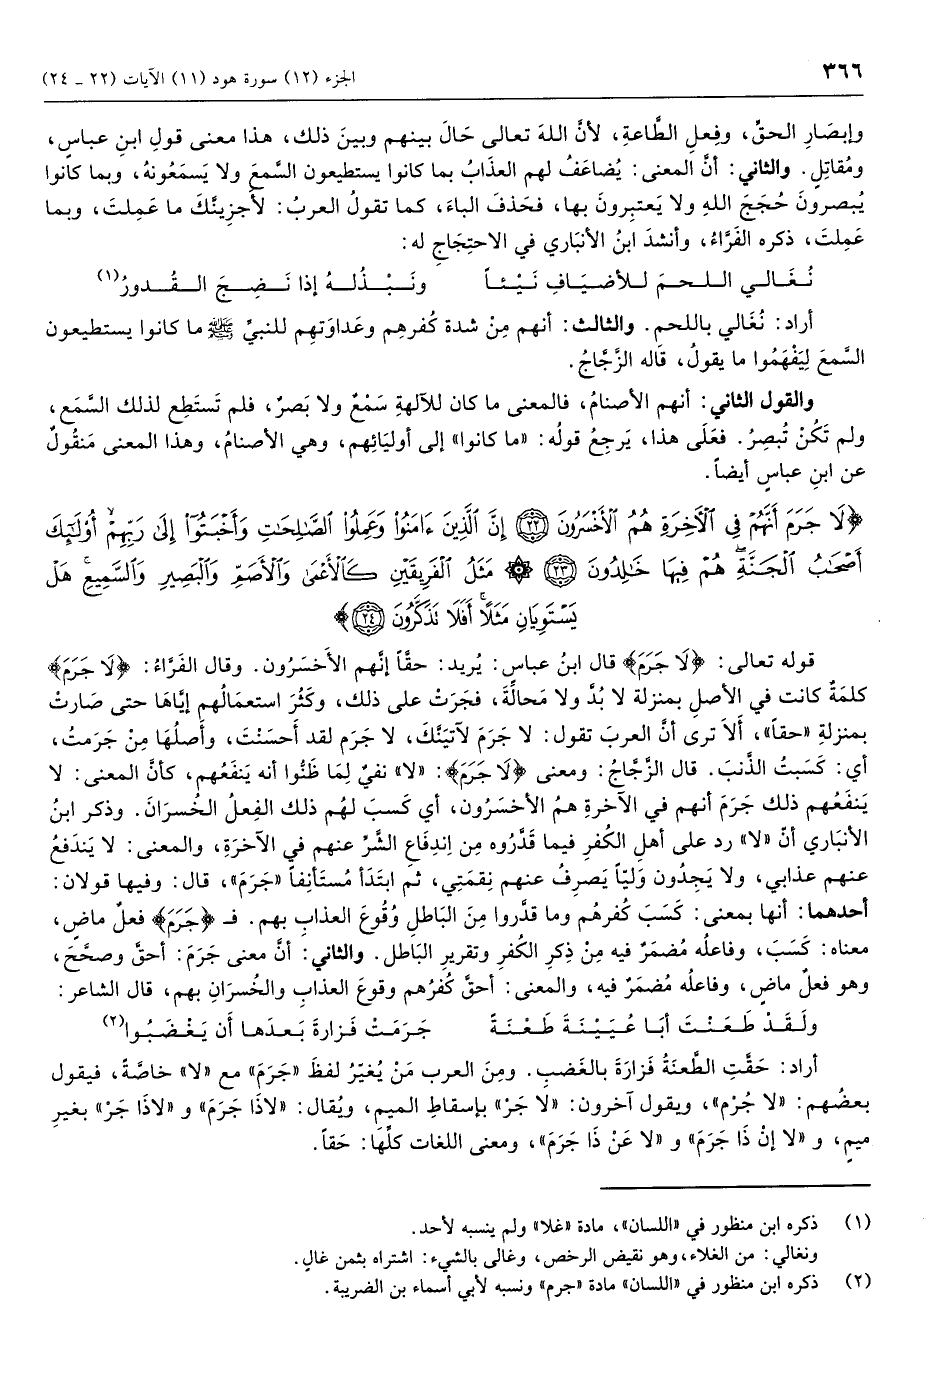 ٣٦٦
الجزء (١٢) سورة هود (١١) الآيات (٢٢ ـ ٢٤)
وإبصَارِ الحقِّ، وفِعلِ الطَّاعةِ، لأنَّ اللهَ تعالى حَالَ بينهم وبينَ ذلك، هذا معنى قولِ ابنِ عباسٍ،
ومُقاتِلٍ. والثاني: أنَّ المعنى: يُضاعَفُ لهم العذَابُ بما كانوا يستطيعون السَّمعَ ولا يَسمَعُونهُ، وبما كانوا
يُبصرونَ حُجَجَ اللهِ ولا يَعتبِرونَ بها، فحَذفَ الباءَ، كما تقولُ العربُ: لأجزِينَّكَ ما عَمِلتَ، وبما
عَمِلتَ، ذكره الفَرَّاءُ، وأنشدَ ابنُ الأنبَاري في الاحتِجَاجِ له:
نُغَالي اللحمَ للأضيَافِ نَيْئاً ونَبْذُلهُ إذا نَضِجَ القُدورُ(١)
أراد: نُغَالي باللحمِ. والثالث: أنهم مِنْ شدة كُفرِهم وعَداوَتِهم للنبيِّ ﷺ ما كانوا يستطيعون
السَّمعَ لِيَفْهَمُوا ما يقولُ، قَاله الزَّجَّاجُ.
والقول الثاني: أنهم الأصنامُ، فالمعنى ما كان للآلهةِ سَمْعٌ ولا بَصرٌ، فلم تَستَطِع لذلك السَّمَع،
ولم تَكُنْ تُبصِرُ. فعَلَى هذا، يَرجِعُ قولُه: «ما كانوا» إلى أوليَائِهم، وهي الأصنامُ، وهذا المعنى مَنقُولٌ
عن ابنِ عباسٍ أيضاً.
﴿لَا جَرَمَ أَنَّهُمْ فِي ٱلْآخِرَةِ هُمُ ٱلْأَخْسَرُونَ ٢٢ إِنَّ ٱلَّذِينَ ءَامَنُوا۟ وَعَمِلُوا۟ ٱلصَّٰلِحَٰتِ وَأَخْبَتُوٓا۟ إِلَىٰ رَبِّهِمْ أُو۟لَٰٓئِكَ
أَصْحَٰبُ ٱلْجَنَّةِ هُمْ فِيهَا خَٰلِدُونَ ٢٣ ۞ مَثَلُ ٱلْفَرِيقَيْنِ كَٱلْأَعْمَىٰ وَٱلْأَصَمِّ وَٱلْبَصِيرِ وَٱلسَّمِيعِ هَلْ
يَسْتَوِيَانِ مَثَلًا أَفَلَا نَذَكَّرُونَ ٢٤﴾
قوله تعالى: ﴿لَا جَرَمَ﴾ قال ابنُ عباس: يُريد: حقّاً إنَّهم الأَخسَرُون. وقال الفَرَّاءُ: ﴿لَا جَرَمَ﴾
كلمَةٌ كانت في الأصلِ بمنزلة لا بُدَّ ولا مَحالَةَ، فجَرَتْ على ذلك، وكَثُرَ استعمَالُهم إيَّاهَا حتى صَارتْ
بمنزلةِ «حقاً»، ألَا ترى أنَّ العربَ تقول: لا جَرَمَ لآتيَنَّكَ، لا جَرَم لقد أحسَنْتَ، وأصلُهَا مِنْ جَرَمتُ،
أي: كَسَبتُ الذَّنبَ. قال الزَّجَّاجُ: ومعنى ﴿لَا جَرَمَ﴾: «لا» نفيٌ لِمَا ظَنُّوا أنه يَنفَعُهم، كأنَّ المعنى: لا
يَنفَعُهم ذلك جَرَمَ أنهم في الآخرةِ همُ الأخسَرُون، أي كَسبَ لهُم ذلك الفِعلُ الخُسرَانَ. وذكر ابنُ
الأنبَاري أنَّ «لا» رد على أهلِ الكُفر فيما قَدَّرُوه مِن اِندِفَاعِ الشَّرِّ عنهم في الآخرَةِ، والمعنى: لا يَندَفعُ
عنهم عذابي، ولا يَجِدُون وَليّاً يَصرِفُ عنهم نِقمَتِي، ثم ابتَدَأ مُستَأنِفاً «جَرَمَ»، قال: وفيها قولان:
أحدهما: أنها بمعنى: كَسَبَ كُفرهُم وما قدَّروا مِنَ البَاطلِ وُقُوعَ العذاب بهم. فـ ﴿جَرَمَ﴾ فعلٌ ماضٍ،
معناه: كَسَبَ، وفاعلُه مُضمَرٌ فيه مِنْ ذِكرِ الكُفرِ وتقريرِ البَاطل. والثاني: أنَّ معنى جَرَمَ: أحقَّ وصحَّحَ،
وهو فعلٌ ماضٍ، وفاعلُه مُضمَرٌ فيه، والمعنى: أحقَّ كُفرُهم وقوعَ العذابِ والخُسرانِ بهم، قال الشاعر:
ولَقَدْ طَعَنْتَ أبَا عُيَيْنَةَ طَعْنَةً جَرَمَتْ فَزارةَ بَعدَهَا أَن يَغْضَبُوا(٢)
أراد: حَقَّتِ الطَّعنَةُ فَزَارَةَ بالغَضبِ. ومِنَ العرب مَنْ يُغيّرُ لفظَ «جَرَمَ» مع «لا» خاصَّةً، فيقول
بعضُهم: «لا جُرْم»، ويقول آخرون: «لا جَرْ» بإسقاطِ الميمِ، ويُقال: «لاذَا جَرَمَ» و «لاذَا جَرْ» بغيرِ
ميمٍ، و «لا إنْ ذَا جَرَمَ» و «لا عَنْ ذَا جَرَمَ»، ومعنى اللغات كلِّهَا: حَقاً.
(١) ذكره ابن منظور في «اللسان»، مادة «غلا» ولم ينسبه لأحد.
ونغالي: من الغلاء،وهو نقيض الرخص، وغالى بالشيء: اشتراه بثمن غالٍ.
(٢) ذكره ابن منظور في «اللسان» مادة «جرم» ونسبه لأبي أسماء بن الضريبة.